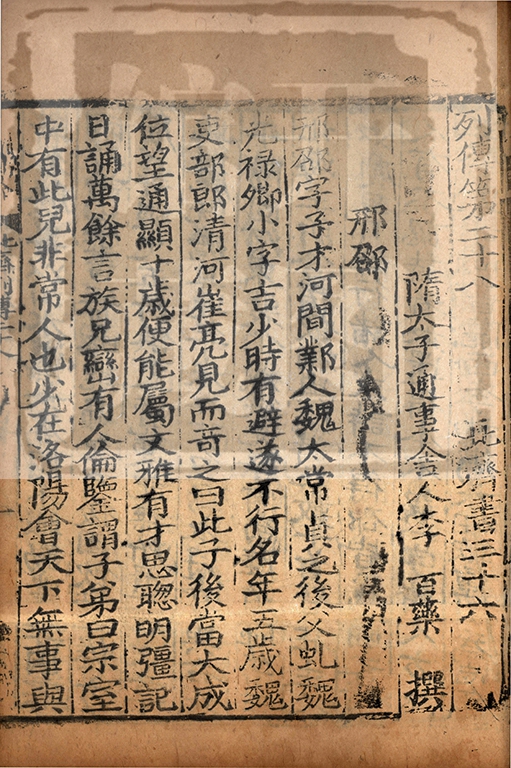 列傳第二十八 北齊書三十六
隋太子通事舍人李 百藥 撰
邢卲
邢卲字子才河間鄚人魏太常貞之後父虬魏
光祿卿小字吉少時有避遂不行名年五歲魏
吏部郎清河崔亮見而奇之曰此子後當大成
位望通顯十歲便能屬文雅有才思聰明彊記
日誦萬餘言族兄巒有人倫鑒謂子弟曰宗室
中有此兒非常人也少在洛陽會天下無事與